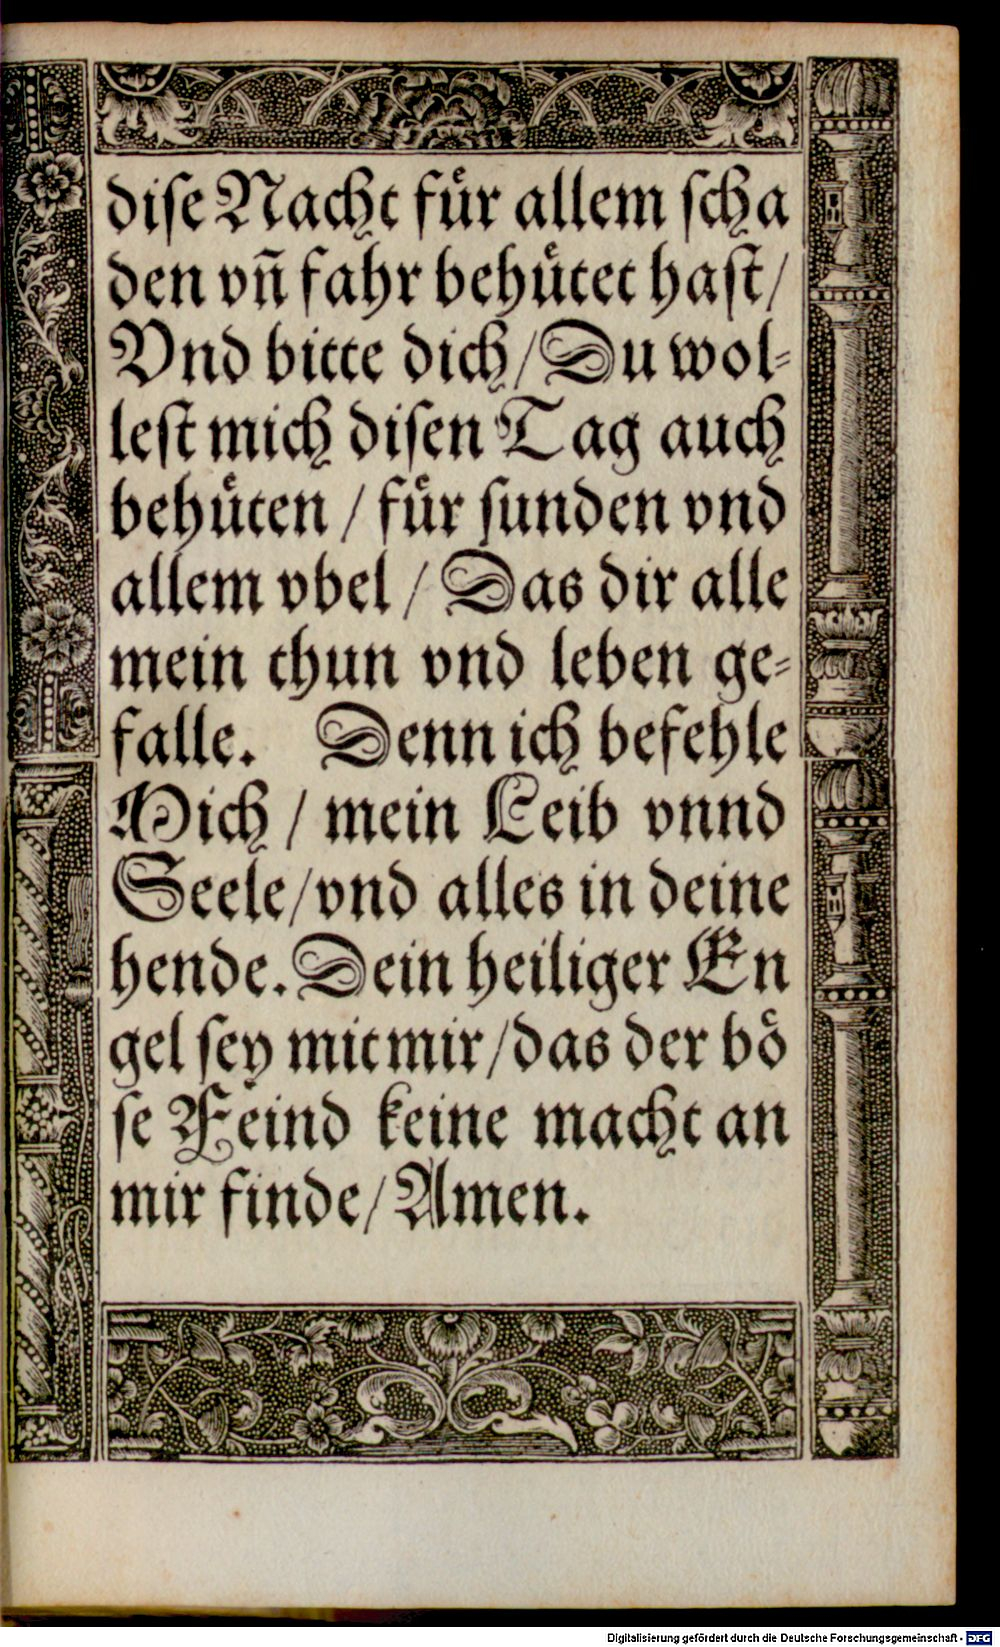 diſe Nacht fuͤr allem ſcha
den vñ fahr behuͤtet haſt/
Vnd bitte dich/Du wol⸗
leſt mich diſen Tag auch
behuͤten / fuͤr ſunden vnd
allem vbel / Das dir alle
mein thun vnd leben ge⸗
falle. Denn ich befehle
Mich / mein Leib vnnd
Seele/vnd alles in deine
hende. Dein heiliger En
gel ſey mit mir/das der boͤ
ſe Feind keine macht an
mir finde/Amen.
Digitalisierung gefördert durch die Deutsche Forschungsgemeinschaft - DFG